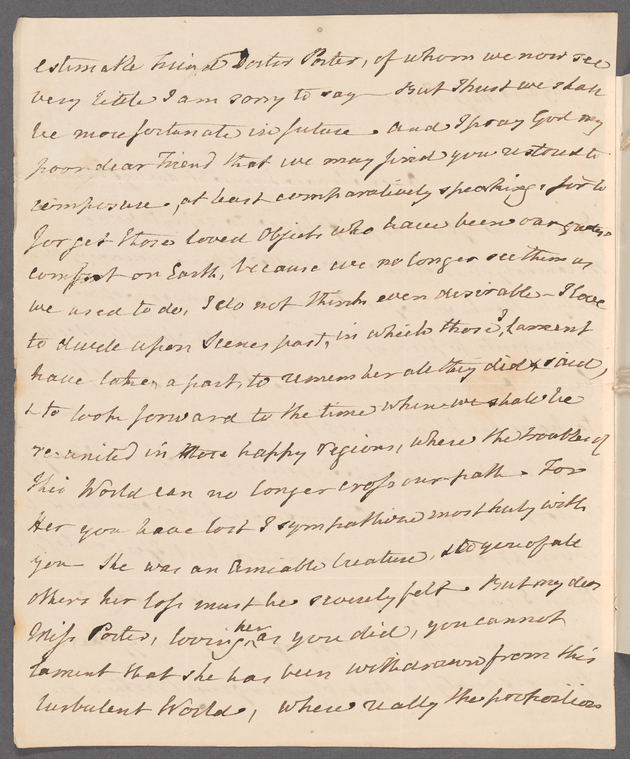 estimable friend Doctor Porter, of whom we now see
very little I am sorry to say — But I trust we shall
be more fortunate in future. and I pray God my
poor dear Friend that we may find you restored to
composure, at least comparatively speaking, for to
forget those loved Objects who have been our
comfort on Earth, because we no longer see them as
we used to do, I do not think even desirable — I love
to dwell upon Scenes past, in which those I lament
have taken a part, to remember all they did & said,
& to look forward to the time when we shall be
re-united in those happy regions, where the troubles of
this World can no longer cross our path. For
Her you have lost I sympathise most truly with
you — She was an Amiable Creature, & to you of all
others her loss must be severely felt. But my dear
Miss Porter, loving her, as you did, you cannot
lament that she has been withdrawn from this
turbulent World, where really the proportion